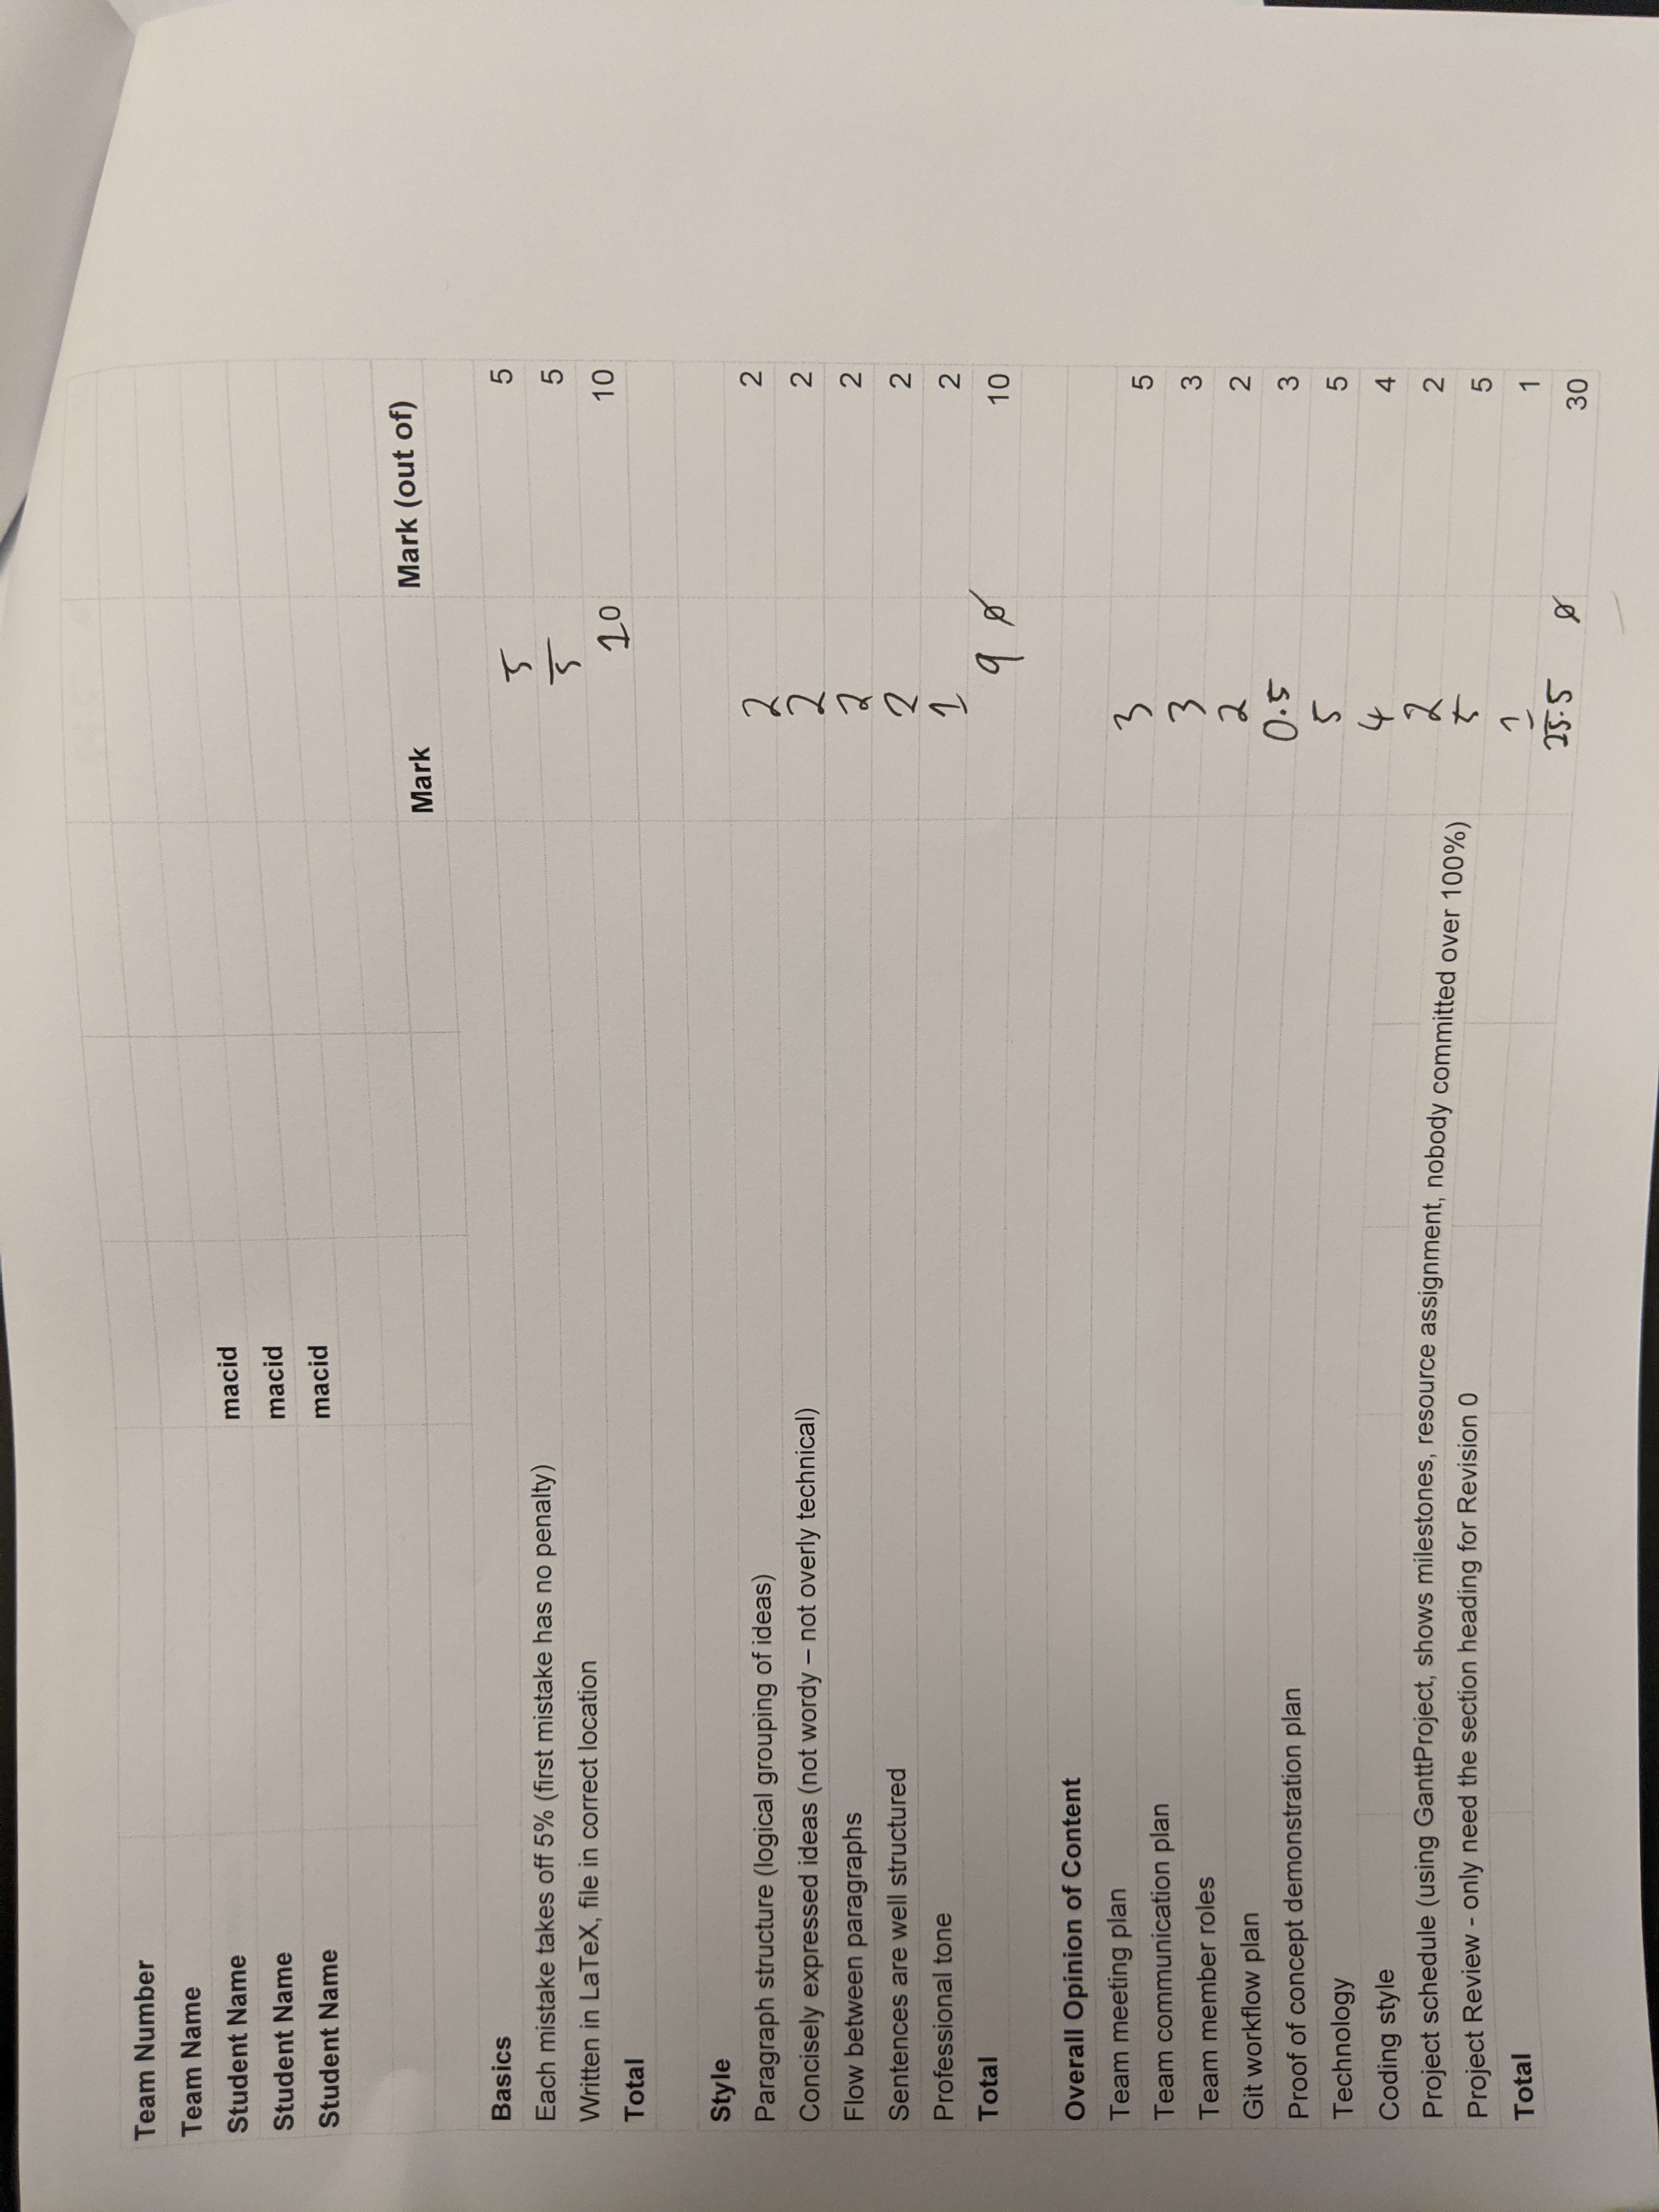 Team Number
Team Name
Student Name macid
Student Name macid
Student Name macid
Mark Mark (out of)
Basics
Each mistake takes off 5% (first mistake has no penalty) 5 5
Written in LaTeX, file in correct location 5 5
Total 10 10
Style
Paragraph structure (logical grouping of ideas) 2 2
Concisely expressed ideas (not wordy – not overly technical) 2 2
Flow between paragraphs 2 2
Sentences are well structured 2 2
Professional tone 1 2
Total 9 0 10
Overall Opinion of Content
Team meeting plan 3 5
Team communication plan 3 3
Team member roles 2 2
Git workflow plan 0.5 3
Proof of concept demonstration plan 5 5
Technology 4 4
Coding style 2 2
Project schedule (using GanttProject, shows milestones, resource assignment, nobody committed over 100%) 5 5
Project Review - only need the section heading for Revision 0 1 1
Total 25.5 0 30